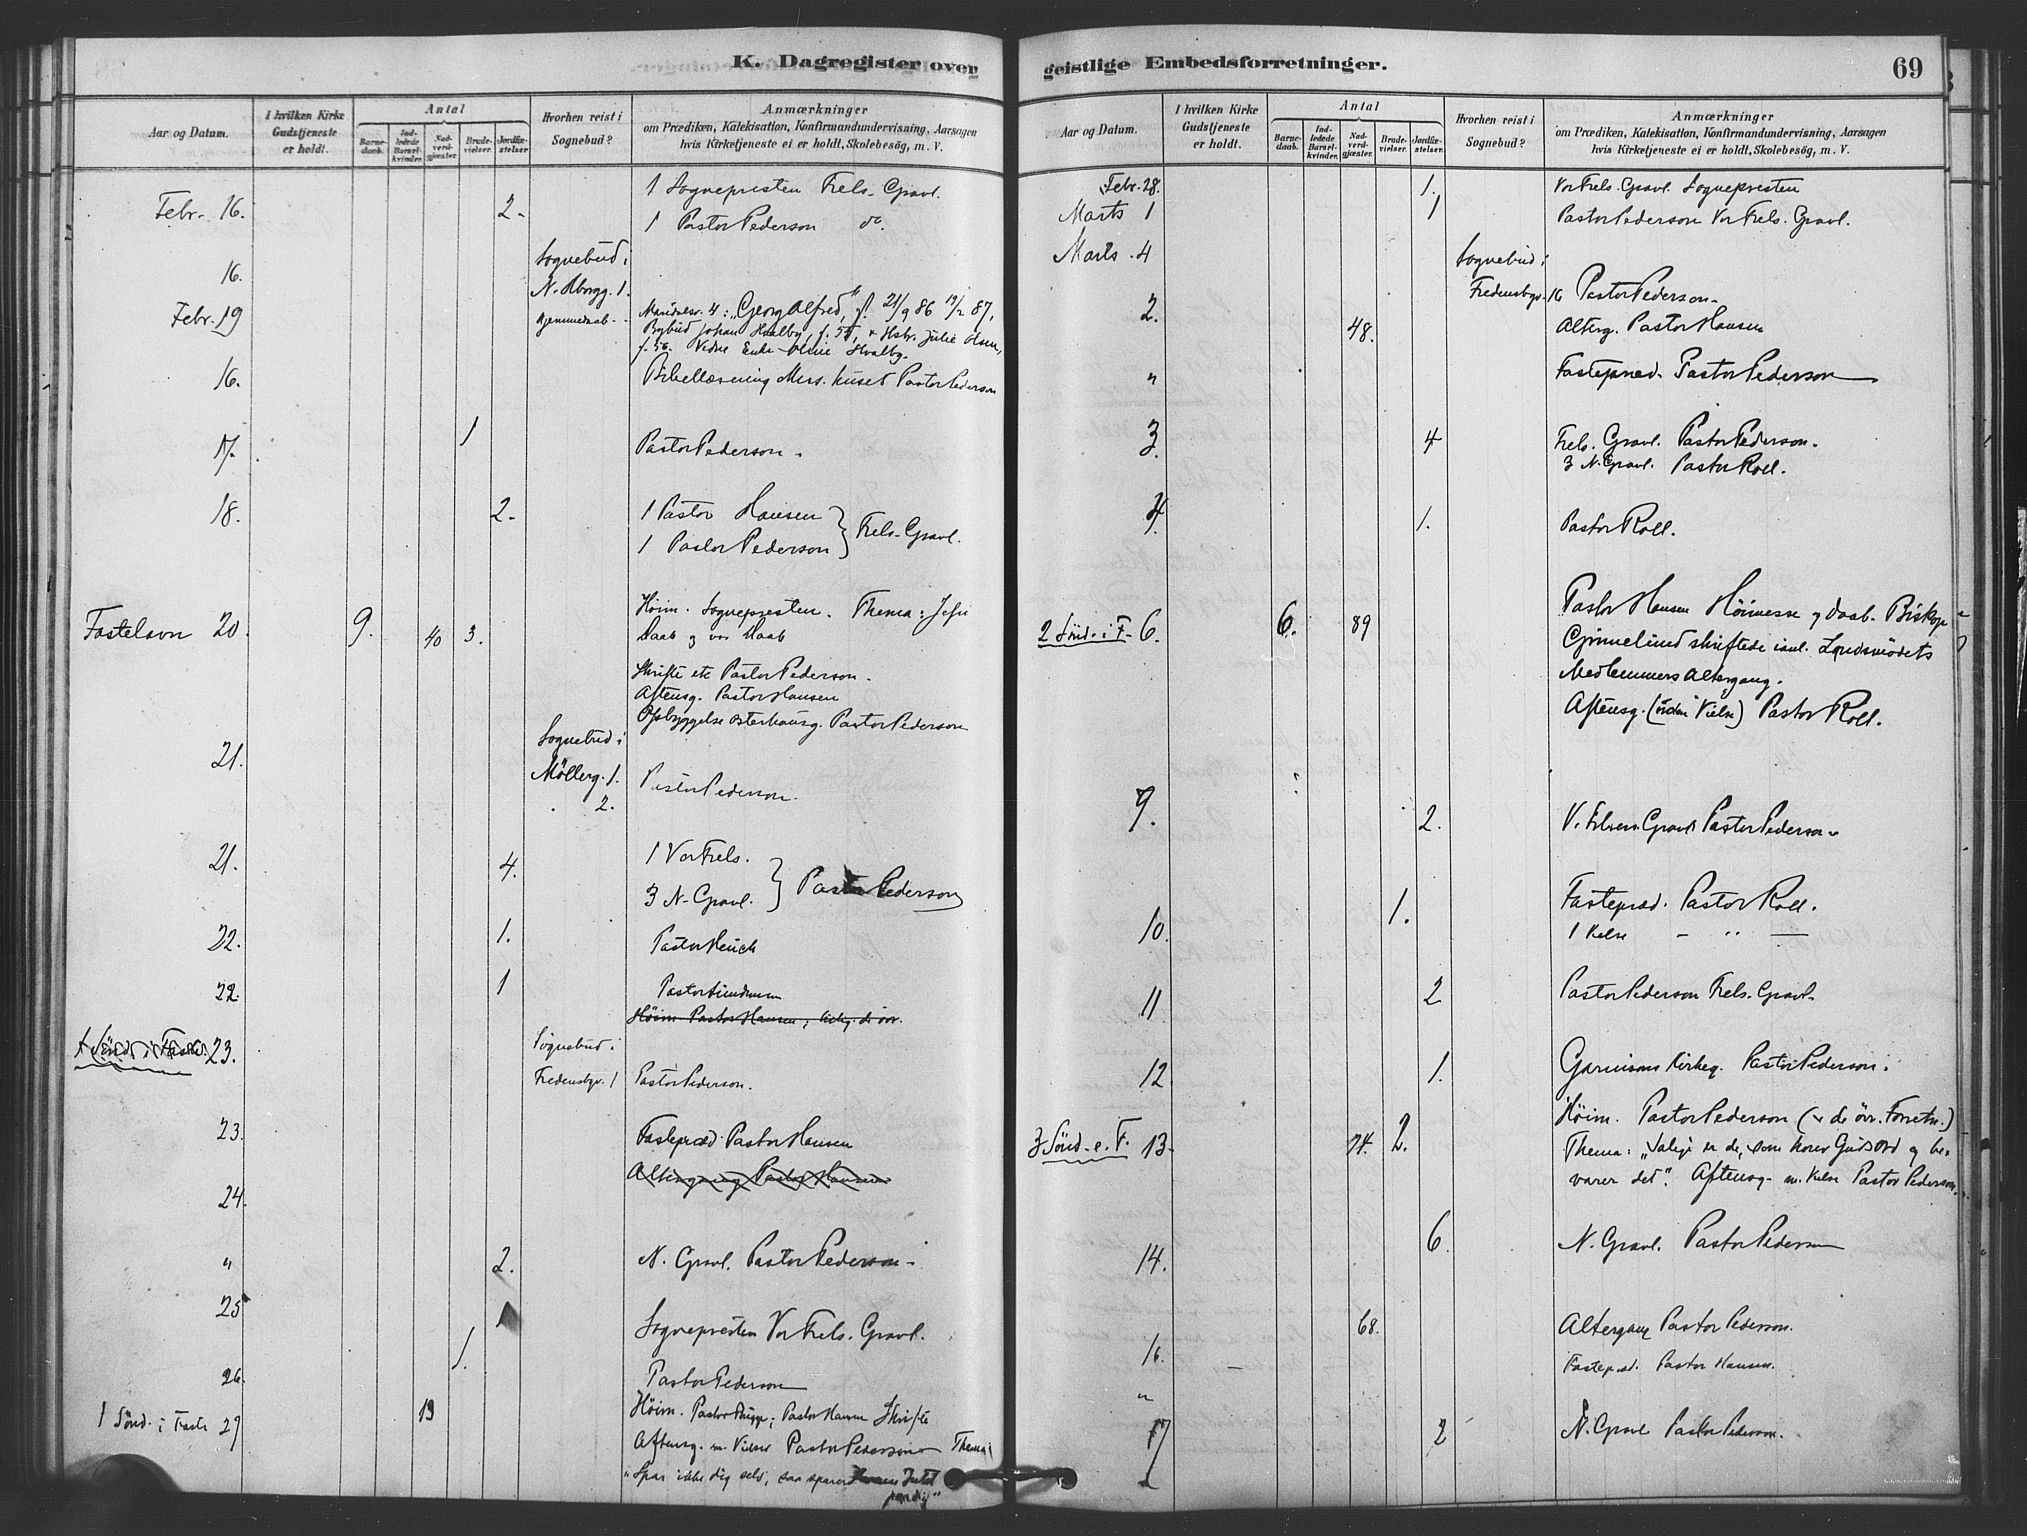 K. Dagregister over
Aar og Datum.
I hvilken Kirke Gudstjeneste er holdt.
Antal
Barnedaab.
Indledede Barselkvinder.
Nadverdgjæster.
Brudevielser.
Jordfæstelser.
Hvorhen reist i Sognebud?
Anmærkninger
om Prædiken, Katekisation, Konfirmandundervisning, Aarsagen
hvis Kirketjeneste ei er holdt, Skolebesög, m. V.
Febr. 16. 2. 1 Sognepresten Frels. Gravl.
1 Pastor Pederson do.
16. Sognebud i
N. 1.
Febr. 19 Hjemmedaab 4: "Georg Alfred", f. 21/9 86 19/2 87,
Johan Hvalby, f. 55, & Hstr. Julie Olsen,
f. 56. Vidne Enke Hvalby.
16. Bibellæsning Miss. huset Pastor Pederson
17. 1 Pastor Pederson.
18. 2. 1 Pastor Hansen
1 Pastor Pederson } Frels. Gravl.
Fastelavn 20. 9. 40 3. Höim. Sognepresten. Thema: Jesu
Daab og vor Daab
Skrifte etc Pastor Pederson.
Aftensg. Pastor Hansen
Opbyggelse Osterhausg. Pastor Pederson
21. Sognebud i
Möllerg. 1.
2. Pastor Pederson.
21. 4. 1 Vor Frels.
3 N. Gravl. } Pastor Pederson
22. 1. Pastor Heuch
22. 1 Pastor
Höim Pastor Hansen;
23. Sognebud i
Fredensbgv. 1 Pastor Pederson.
23. Fastepræd. Pastor Hansen
Altergang Pastor Hansen
24.
" 2. N. Gravl. Pastor Pederson.
25 1 Sognepresten Vor Frels. Gravl.
26. 1. Pastor Pederson
1 Sönd. i Faste 27 19 Höim. Pastor Pastor Hansen Skrifte
Aftensg. m. Vielser Pastor Pederson Thema:
"Spar ikke dig selv, saa sparer Intet
paa dig"
geistlige Embedsforretninger.
69
Aar og Datum.
I hvilken Kirke Gudstjeneste er holdt.
Antal
Barnedaab.
Indledede Barselkvinder.
Nadverdgjæster.
Brudevielser.
Jordfæstelser.
Hvorhen reist i Sognebud?
Anmærkninger
om Prædiken, Katekisation, Konfirmandundervisning, Aarsagen
hvis Kirketjeneste ei er holdt, Skolebesög, m. V.
Febr. 28. 1. Vor Frels. Gravl. Sognepresten
Marts 1 1 Pastor Pederson Vor Frels. Gravl.
Marts 4 Sognebud i
Fredensbgv. 16 Pastor Pederson.
2. 48. Alterg. Pastor Hansen
" Fastepræd. Pastor Pederson
3. 4 Frels. Gravl. Pastor Pederson.
3 N. Gravl. Pastor Roll.
4. 1. Pastor Roll.
2 Sönd. i F. 6. 6. 89 Pastor Hansen Höimesse og Daab. Biskop
skriftede Landsmödets
Medlemmers Altergang.
Aftensg. (uden Vielse) Pastor Roll.
9. 2. V. Frelsers Gravl. Pastor Pederson
10. 1. Fastepræd. Pastor Roll.
1 Vielse - " -
11 2 Pastor Pederson Frels. Gravl.
12 1. Garnisons kirkeg. Pastor Pederson.
3 Sönd. e. F. 13. 74. 2. Höim. Pastor Pederson (& de övr. Forretn.)
Thema: "Salige er de, som hörer Guds Ord og be-
varer det". Aftensg. m. Vielse Pastor Pederson.
14. 6. N. Gravl. Pastor Pederson
16. 68. Altergang Pastor Pederson.
" Fastepræd. Pastor Hansen.
17 2 N. Gravl Pastor Pederson.